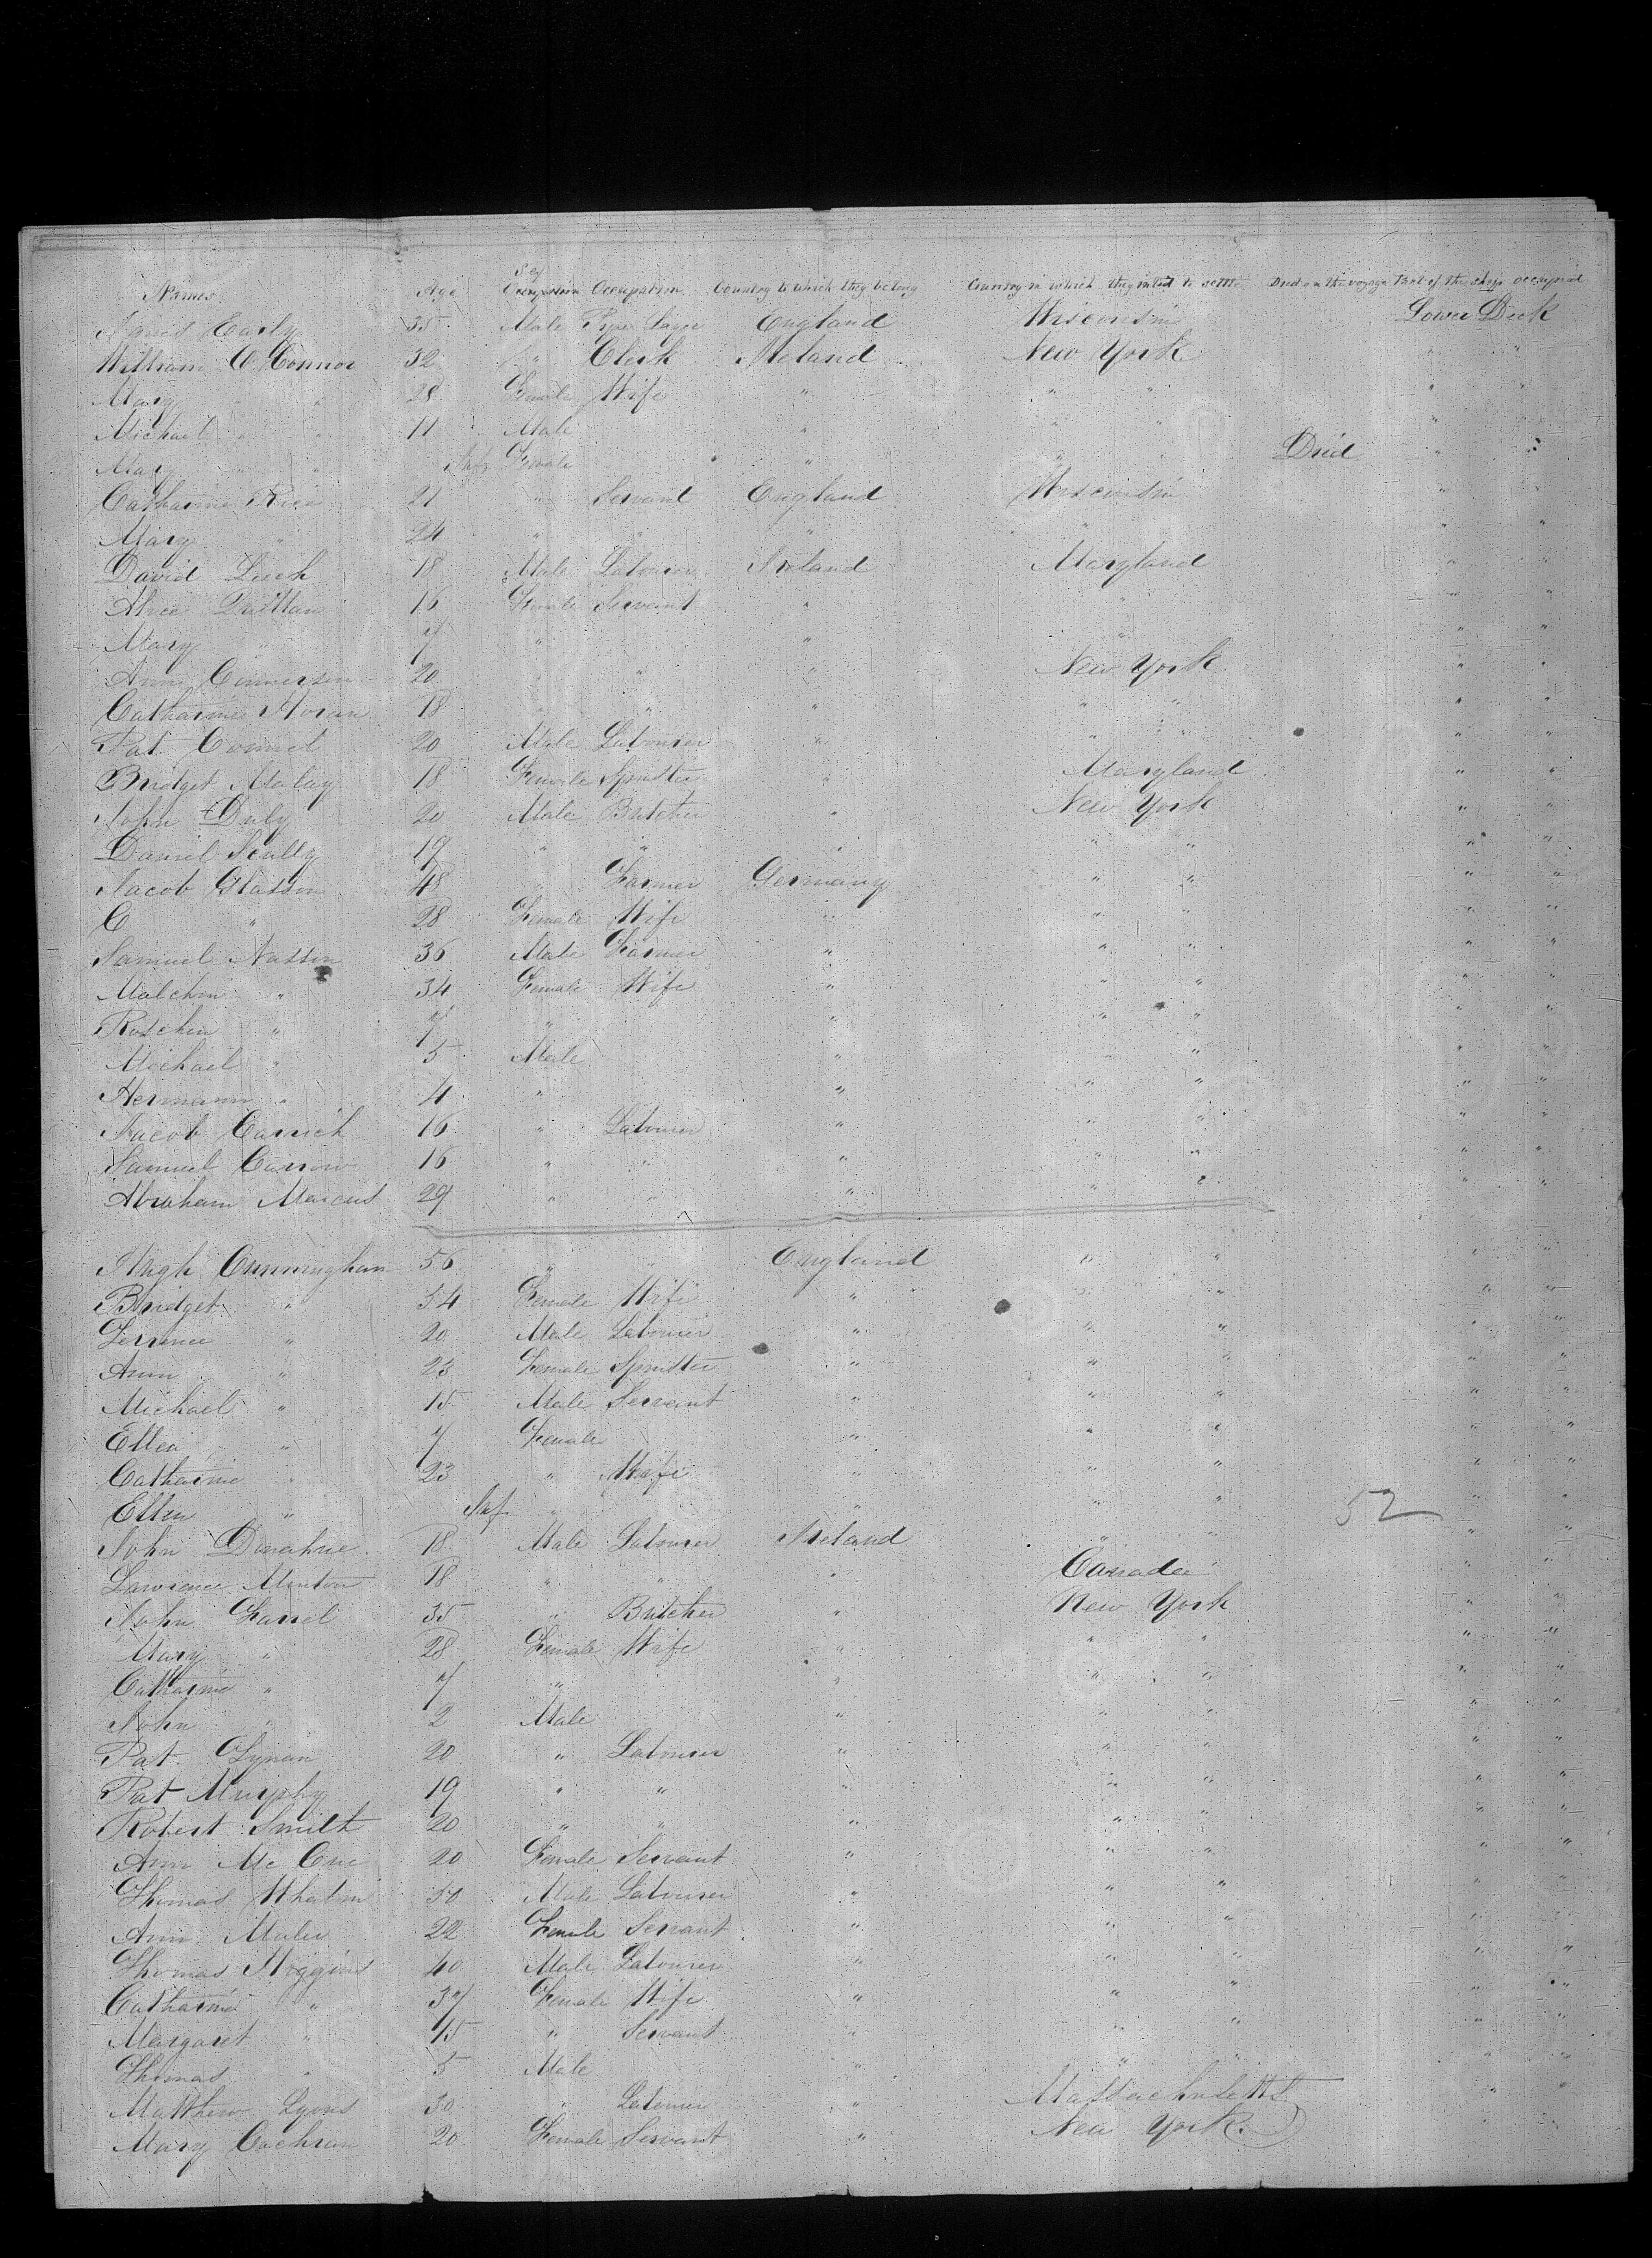 Sex
Names Age Occupation Occupation Country to which they belong Country in which they intend to settle Died on the voyage Part of the ship occupied
James Early 35 Male Pipe Layer England Wisconsin Lower Deck
William O Connor 32 " Clerk Ireland New York " "
Mary " " 28 Female Wife " " " " "
Michael " " 11 Male " " " " "
Mary " " Inf Female " " " Died " "
Catharine Rice 21 " Servant England Wisconsin " "
Mary " 24 " " " " " "
David Leech 18 Male Labourer Ireland Maryland " "
Alice 16 Female Servant " " " "
Mary " 7 " " " " "
Ann 20 " " " New York " "
Catharine Horan 18 " " " " " " "
Pat 20 Male Labourer " " " " "
Bridget Malay 18 Female Spinster " Maryland " "
John Duly 20 Male Butcher " New York " "
Daniel Scully 19 " " " " " " "
Jacob Glasson 48 " Farmer Germany " " " "
C " 28 Female Wife " " " " "
Samuel Nasson 36 Male Farmer " " " " "
Malchin " 34 Female Wife " " " " "
Roschen " 7 " " " " " "
Michael " 5 Male " " " " "
Hermann " 4 " " " " " "
Jacob 16 " Labourer " " " " "
Samuel 16 " " " " " " "
Abraham Marcus 29 " " " " " " "
Hugh Cunningham 56 " " England " " " "
Bridget " 54 Female Wife " " " " "
Terrence " 20 Male Labourer " " " " "
Ann " 23 Female Spinster " " " " "
Michael " 15 Male Servant " " " " "
Ellen " 7 Female " " " " "
Catharine " 23 " Wife " " " " "
Ellen " Inf " " " " 52 " "
John Donahue 18 Male Labourer Ireland " " " "
Lawrence Minton 18 " " " Canada " "
John Farrel 35 " Butcher " New York " "
Mary " 28 Female Wife " " " " "
Catharine " 7 " " " " " "
John " 2 Male " " " " "
Pat 20 " Labourer " " " " "
Pat Murphy 19 " " " " " " "
Robert Smith 20 " " " " " " "
Ann Mc Cue 20 Female Servant " " " " "
Thomas 30 Male Labourer " " " " "
Ann 22 Female Servant " " " " "
Thomas Higgins 40 Male Labourer " " " " "
Catharine " 37 Female Wife " " " " "
Margaret " 15 " Servant " " " " "
Thomas " 5 Male " " " " "
Matthew Lyons 30 " Labourer " Massachusetts " "
Mary Cochran 20 Female Servant " New York